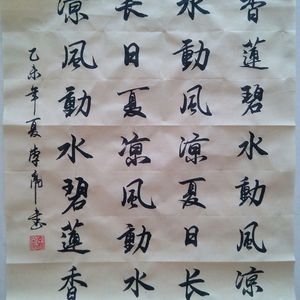 香蓮碧水動風涼
水動風涼夏日長
長日夏涼風動水
涼風動水碧蓮香
乙未年夏李書